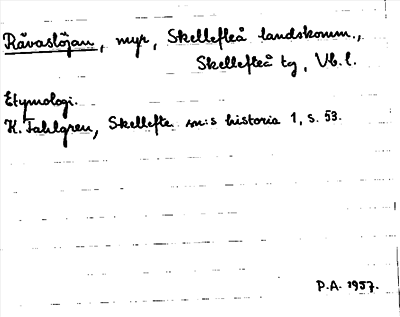 Rävaslöjan, myr, Skellefteå landskomm.,
Skellefteå tg, Vb.l.
Etymologi.
K. Fahlgren, Skellefte sn:s historia 1, s. 53.
P.A. 1957.